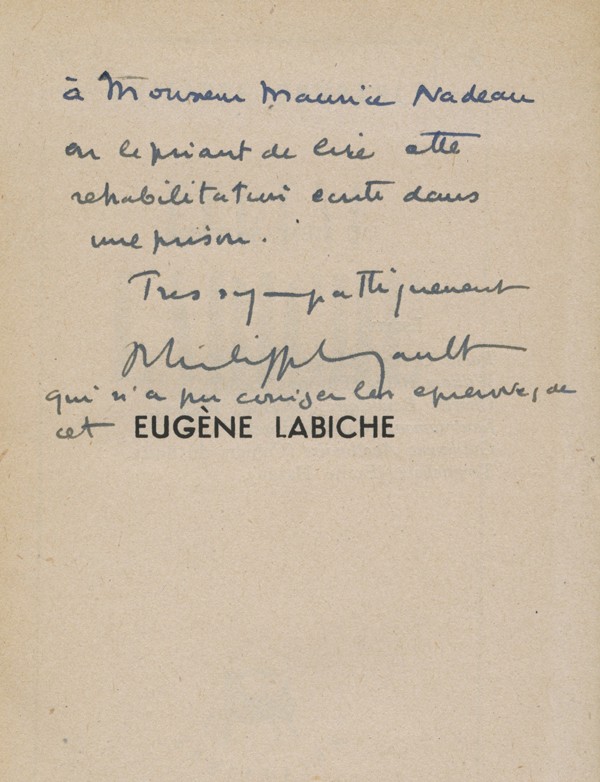 à Monsieur Maurice Nadeau
en le priant de lire cette
rehabilitation ecrite dans
une prison.
Tres sympathiquement
Philippe Soupault
qui n'a pu corriger les epreuves de
cet EUGÈNE LABICHE